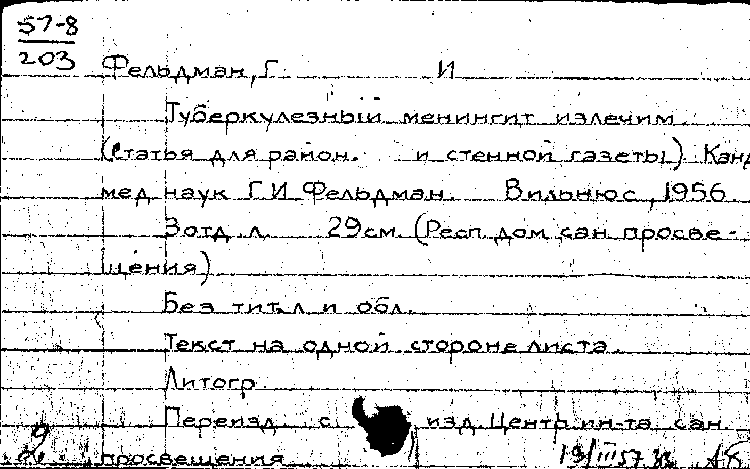 57-8
203
Фельдман, Г. И
Туберкулезный менингит излечим.
(Статья для район. и стенной газеты) Канд
мед наук Г.И Фельдман. Вильнюс, 1956
3 отд. л. 29 см. (Респ. дом сан просве-
щения)
Без тит. л и обл.
Текст на одной стороне листа.
Литогр
Переизд. с изд. Центр ин-та сан
просвещения